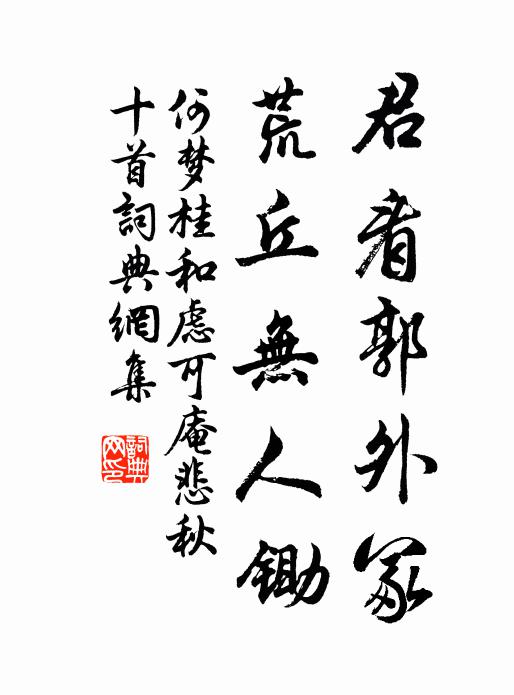 君看郭外冢
荒丘無人鋤
何梦桂和慮可庵悲秋
十首詞典網集
詞典網印